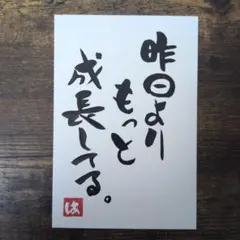 昨日より
もっと
成長してる。
は